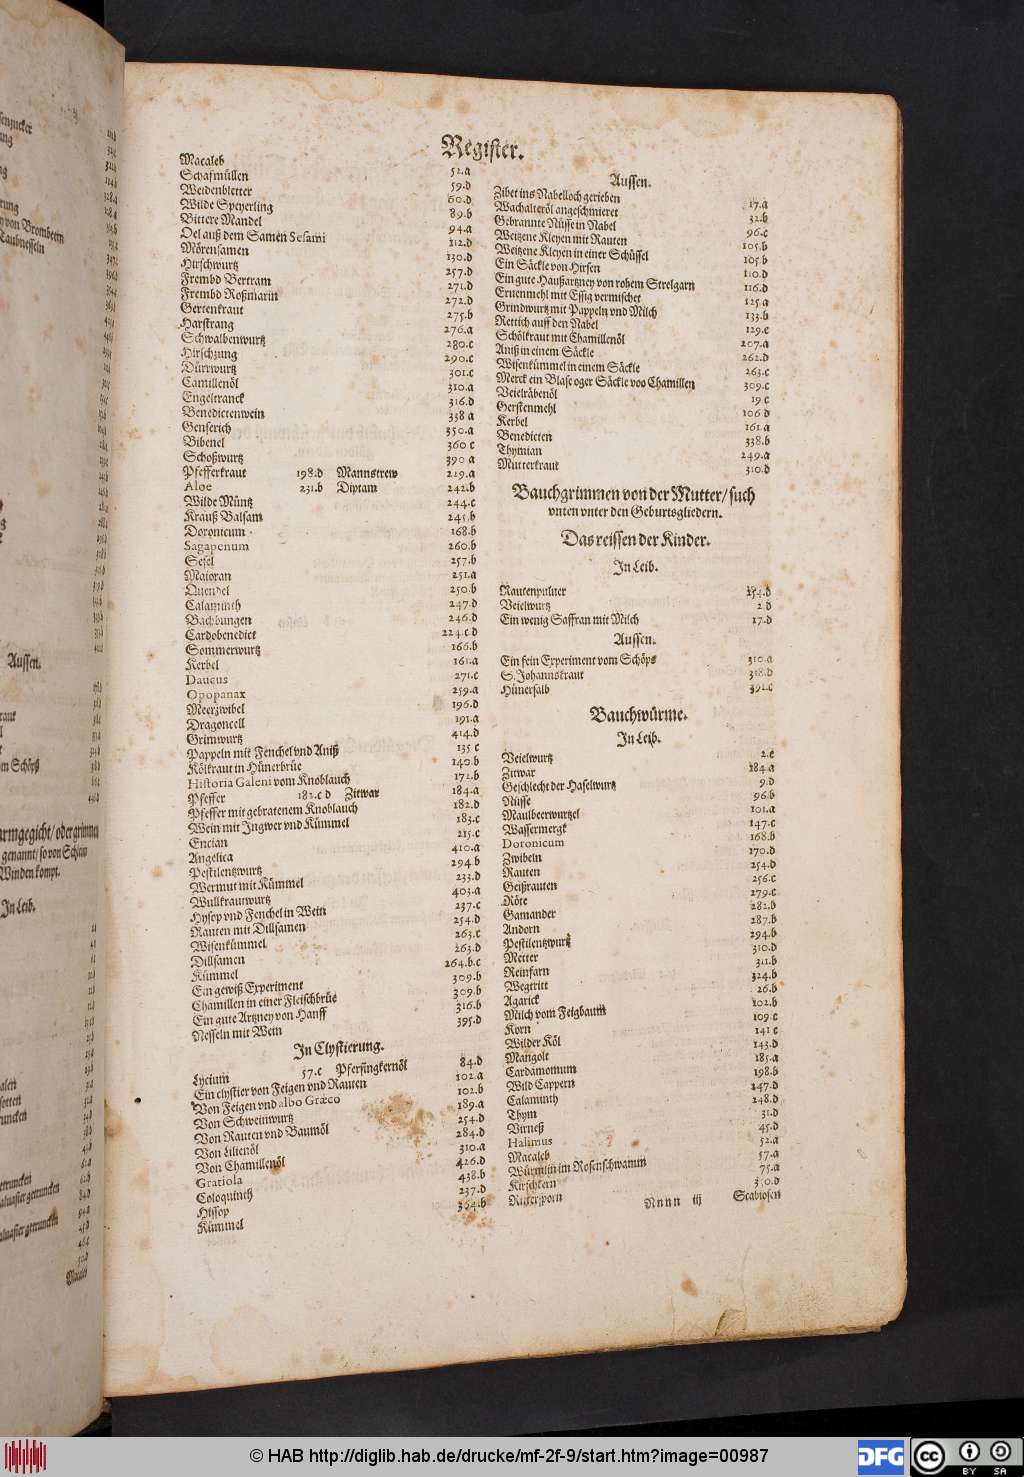 Register.
Macaleb 52.a
Schafmüllen 59.d
Weidenbletter 60.d
Wilde Speyerling 89.b
Bittere Mandel 94.a
Oel auß dem Samen Sesami 112.d
Mörensamen 130.d
Hirschwurtz 257.d
Frembd Bertram 271.d
Frembd Roßmarin 272.d
Gertenkraut 275.b
Harstrang 276.a
Schwalbenwurtz 280.c
Hirschzung 290.c
Dürrwurtz 301.c
Camillenöl 310.a
Engeltranck 316.d
Benedictenwein 338 a
Genserich 350.a
Bibenel 360 c
Schoßwurtz 390 a
Pfefferkraut 198.d Mannstrew 219.a
Aloe 231.b Diptam 242.b
Wilde Müntz 244.c
Krauß Balsam 245.b
Doronicum 168.b
Sagapenum 260.b
Sesel 257.b
Maioran 251.a
Quendel 250.b
Calaminth 247.d
Bachbungen 246.d
Cardobenedict 224.c d
Sommerwurtz 166.b
Kerbel 161.a
Daucus 271.c
Opopanax 259.a
Meerzwibel 196.d
Dragoncell 191.a
Grimwurtz 414.d
Pappeln mit Fenchel vnd Aniß 135 c
Kölkraut in Hünerbrüe 140.b
Historia Galeni vom Knoblauch 171.b
Pfeffer 182.c d Zitwar 184.a
Pfeffer mit gebratenem Knoblauch 182.d
Wein mit Ingwer vnd Kümmel 183.c
Encian 215.c
Angelica 410.a
Pestilentzwurtz 294.b
Wermut mit Kümmel 233.d
Wullkrautwurtz 403.a
Hysop vnd Fenchel in Wein 237.c
Rauten mit Dillsamen 254.d
Wisenkümmel 263.c
Dillsamen 263.d
Kümmel 264.b.c
Ein gewiß Experiment 309.b
Chamillen in einer Fleischbrüe 309.b
Ein gute Artzney von Hanff 316.b
Nesseln mit Wein 395.d
In Clystierung.
Lycium 57.c Pfersingkernöl 84.d
Ein clystier von Feigen vnd Rauten 102.a
Von Feigen vnd albo Græco 102.b
Von Schweinwurtz 189.a
Von Rauten vnd Baumöl 254.d
Von Lilienöl 284.d
Von Chamillenöl 310.a
Gratiola 426.d
Coloquinth 438.b
Hissop 237.d
Kümmel 364.b
Aussen.
Zibet ins Nabelloch gerieben 17.a
Wachalteröl angeschmieret 32.b
Gebrannte Nüsse in Nabel 96.c
Weitzene Kleyen mit Rauten 105.b
Weitzene Kleyen in einer Schüssel 105.b
Ein Säckle von Hirsen 110.d
Ein gute Haußartzney von rohem Strelgarn 116.d
Eruenmehl mit Essig vermischet 125.a
Grindwurtz mit Pappeln vnd Milch 133.b
Rettich auff den Nabel 129.c
Schölkraut mit Chamillenöl 207.a
Aniß in einem Säckle 262.d
Wisenkümmel in einem Säckle 263.c
Merck ein Blase oger Säckle voo Chamillen 309.c
Veielräbenöl 19 c
Gerstenmehl 106 d
Kerbel 161.a
Benedicten 338.b
Thymian 249.a
Mutterkraut 310.d
Bauchgrimmen von der Mutter/ such
vnten vnter den Geburtsgliedern.
Das reissen der Kinder.
In Leib.
Rautenpuluer 254.d
Veielwurtz 2 d
Ein wenig Saffran mit Milch 17.d
Aussen.
Ein fein Experiment vom Schöps 310.a
S. Johannskraut 318.d
Hünersalb 391.c
Bauchwürme.
In Leib.
Veielwurtz 2.c
Zitwar 184.a
Geschlecht der Haselwurtz 9.d
Nüsse 96.b
Maulbeerwurtzel 101.a
Wassermergk 147.c
Doronicum 168.b
Zwibeln 170.d
Rauten 254.d
Geißrauten 256.c
Röte 279.c
Gamander 282.b
Andorn 287.b
Pestilentzwurtz 294.b
Metter 310.d
Reinfarn 311.b
Wegtritt 324.b
Agarick 26.b
Milch vom Feigbaum 102.b
Korn 109.c
Wilder Köl 141 c
Mangolt 143.d
Cardamomum 185.a
Wild Cappern 198.b
Calaminth 247.d
Thym 248.d
Virneß 31.d
Halimus 45.d
Macaleb 52.a
Würmlin im Rosenschwamm 57.a
Kirschkern 75.a
Rittersporn
Nnnn iij Scabiosen
Aussen.
In Leib.
© HAB http://diglib.hab.de/drucke/mf-2f-9/start.htm?image=00987
DFG
cc BY SA